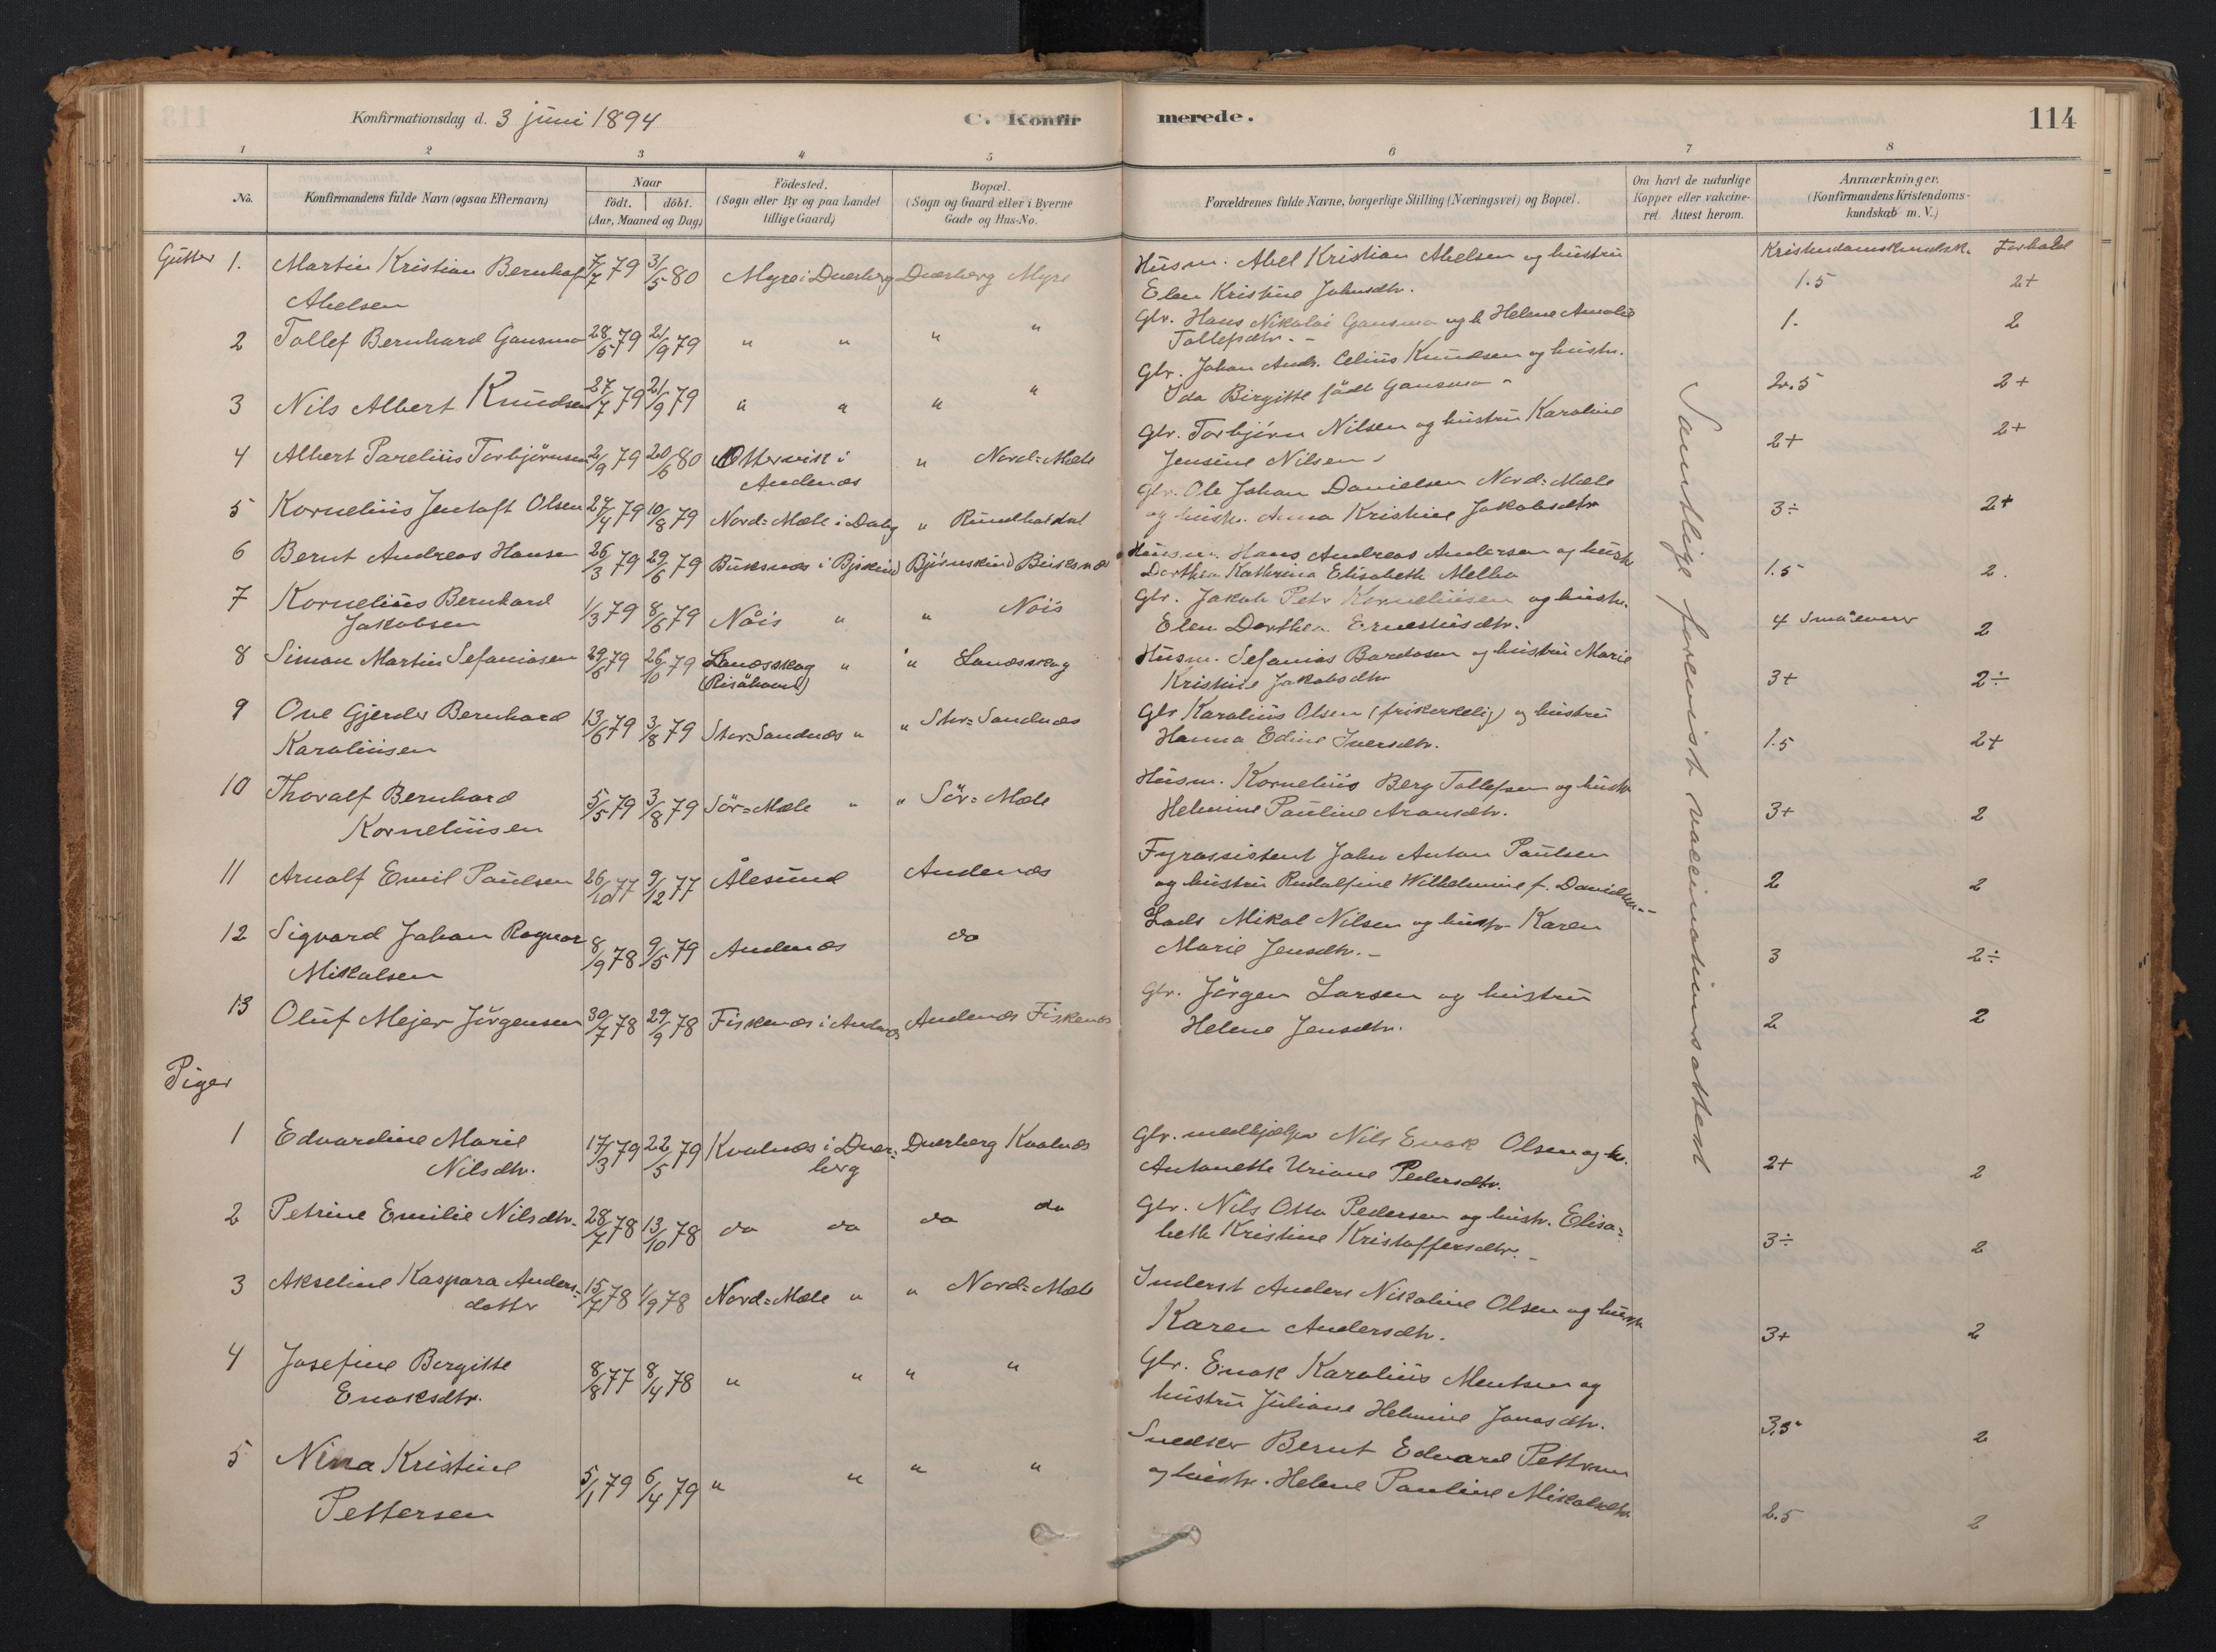 Konfirmationsdag d. 3 juni 1894
C. Konfirmerede.
114
1 2 3 4 5 6 7 8
No.
Konfirmandens fulde Navn (ogsaa Efternavn)
Naar
födt. döbt.
(Aar, Maaned og Dag)
Födested.
(Sogn eller By og paa Landet
tillige Gaard)
Bopæl.
(Sogn og Gaard eller i Byerne
Gade og Hus-No.
Forældrenes fulde Navne, borgerlige Stilling (Næringsvei) og Bopæl.
Om havt de naturlige
Kopper eller vakcine-
ret. Attest herom.
Anmærkninger.
(Konfirmandens Kristendoms-
kundskab m. V.)
Kristendomskundsk. Forhold
Samtlige forevist vaccinationsattest
Gutter 1. Martin Kristian Bernhof 7/7 79 31/5 80 Myre i Dverberg Dverberg Myre Husm. Abel Kristian Abelsen og hustru 1.5 2+
Abelsen Elen Kristine Johnsdtr.
2 Tollef Bernhard Gansmo 28/5 79 21/9 79 " " " " Gbr. Hans Nikolai Gansmo og h. Helene Amalie 1. 2
Tollefsdtr. -
3 Nils Albert Knudsen 27/7 79 21/9 79 " " " " Gbr. Johan Andr. Celius Knudsen og hustr. 2.5 2+
Ida Birgitte födt Gansmo -
4 Albert Parelius Torbjörnsen 2/9 79 20/6 80 Otervik i " Nord=Mæle Gbr. Torbjörn Nilsen og hustru Karoline 2+ 2+
Andenæs Jensine Nilsen -
5 Kornelius Jentoft Olsen 27/4 79 10/8 79 Nord=Mæle i Dvbg " Gbr. Ole Johan Danielsen Nord=Mæle 3÷ 2+
og hustr. Anna Kristine Jakobsdtr
6 Bernt Andreas Hansen 26/3 79 29/6 79 Buksnæs i Bjskind Björnskind Buksnæs Husm. Hans Andreas Andersen og hustr 1.5 2.
Dorthea Kathrina Elisabeth Melbo
7 Kornelius Bernhard 1/3 79 8/6 79 Nöis " " Nöis Gbr. Jakob Petr Korneliusen og hustr. 4 2
Jakobsen Elen Dorthea Ernestusdtr.
8 Simon Martin Sefaniasen 29/6 79 26/10 79 Lanæsskog " " Lanæsskog Husm. Sefanias Bardosen og hustru Marie 3+ 2÷
(Risöhavn) Kristine Jakobsdtr
9 Ove Gjerder Bernhard 13/6 79 3/8 79 Stor=Sandnæs " " Stor=Sandnæs Gbr Karolius Olsen (frikirkelig) og hustru 1.5 2+
Karoliusen Hanna Edine Iversdtr.
10 Thoralf Bernhard 5/5 79 3/8 79 Sör=Mæle " " Sör=Mæle Husm. Kornelius Berg Tollefsen og hustr 3+ 2
Korneliusen Helmine Pauline Aronsdtr.
11 Arnolf Emil Paulsen 26/10 77 9/12 77 Ålesund Andenæs Fyrassistent John Anton Paulsen 2 2
og hustru Rudolfine Wilhelmine f. Davidsen -
12 Sigvard Johan Ragnar 8/9 78 9/5 79 Andenæs do Lods Mikal Nilsen og hustr Karen 3 2÷
Mikalsen Marie Jensdtr. -
13 Oluf Mejer Jörgensen 30/7 78 29/9 78 Fiskenæs i Andenæs Andenæs Fiskenæs Gbr. Jörgen Larsen og hustru 2 2
Helene Jensdtr.
Piger
1 Edvardine Marie 17/3 79 22/5 79 Kvalnæs i Dver= Dverberg Kvalnæs Gbr. medhjælper Nils Enok Olsen og h. 2+ 2
Nilsdtr. berg Antonette Uriane Pedersdtr.
2 Petrine Emilie Nilsdtr. 28/7 78 13/10 78 do do do do Gbr. Nils Otto Pedersen og hustr. Elisa= 3÷ 2
beth Kristine Kristoffersdtr. -
3 Akseline Kaspara Anders= 15/7 78 1/9 78 Nord=Mæle " " Nord=Mæle Inderst Anders Nikoline Olsen og hustr 3+ 2
datter Karen Andersdtr.
4 Josefine Bergitte 8/8 77 8/4 78 " " " " Gbr. Enok Karolius Mentsen og 3.5 2
Enoksdtr. hustru Juliane Helmine Jonasdtr.
5 Nina Kristine 5/1 79 6/4 79 " " " " Snedker Bernt Edvard Pettersen 2.5 2
Pettersen og hustr. Helene Pauline Mikalsdtr.